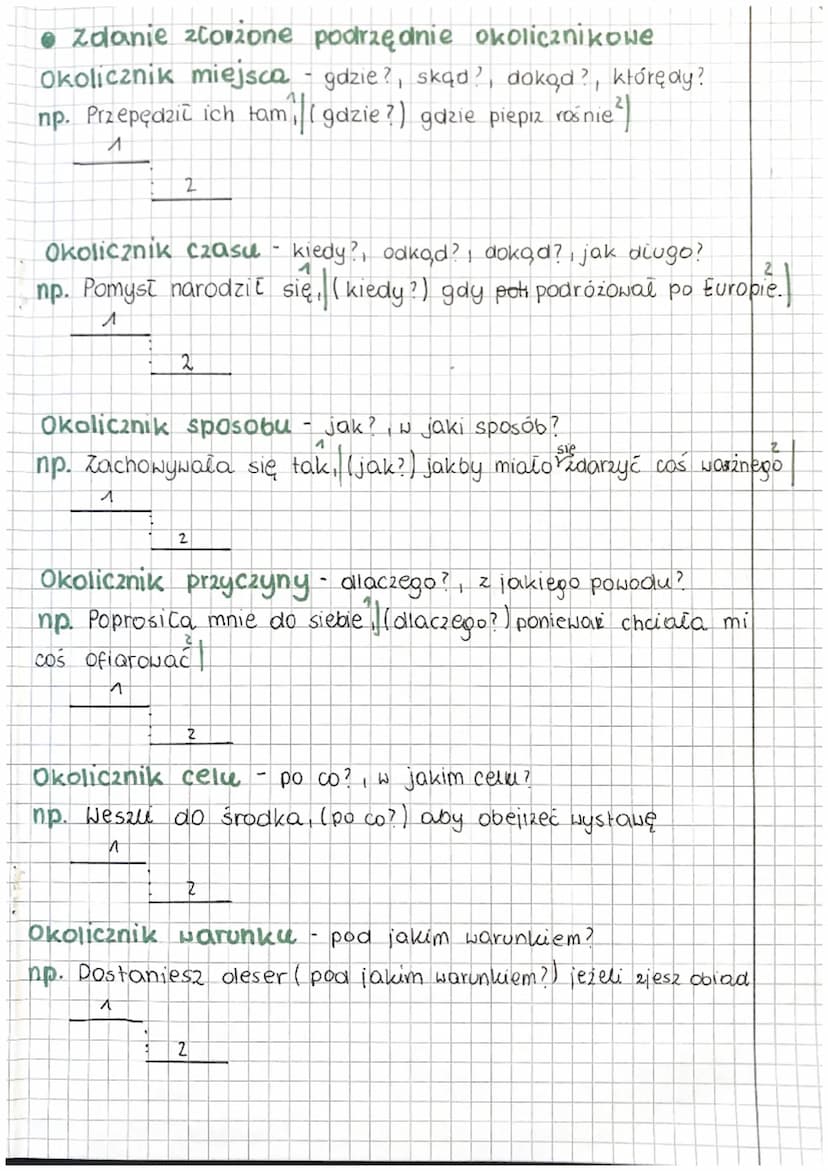 • Zdanie złożone podrzędnie okolicznikowe
Okolicznik miejsca - gdzie?, skąd?, dokąd?, którędy?
np. Przepędził ich tam,¹|(gdzie?) gdzie pieprz rośnie²|
1
2
Okolicznik czasu - kiedy?, odkąd?, dokąd?, jak długo?
np. Pomysł narodził się,¹|(kiedy?) gdy podróżował po Europie.²|
1
2
Okolicznik sposobu - jak?, w jaki sposób?
np. Zachowywała się tak,¹|(jak?) jakby miało się zdarzyć coś ważnego²|
1
2
Okolicznik przyczyny - dlaczego?, z jakiego powodu?
np. Poprosiła mnie do siebie,¹|(dlaczego?) ponieważ chciała mi
coś ofiarować²|
1
2
Okolicznik celu - po co?, w jakim celu?
np. Weszli do środka, (po co?) aby obejrzeć wystawę
1
2
Okolicznik warunku - pod jakim warunkiem?
np. Dostaniesz deser (pod jakim warunkiem?) jeżeli zjesz obiad
1
2